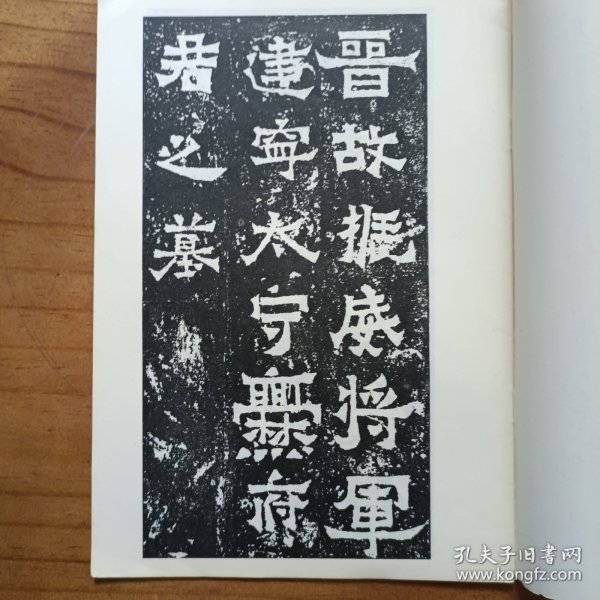 晋故振威将軍
建寧太守爨府
君之墓
孔夫子旧书网
www.kongfz.com